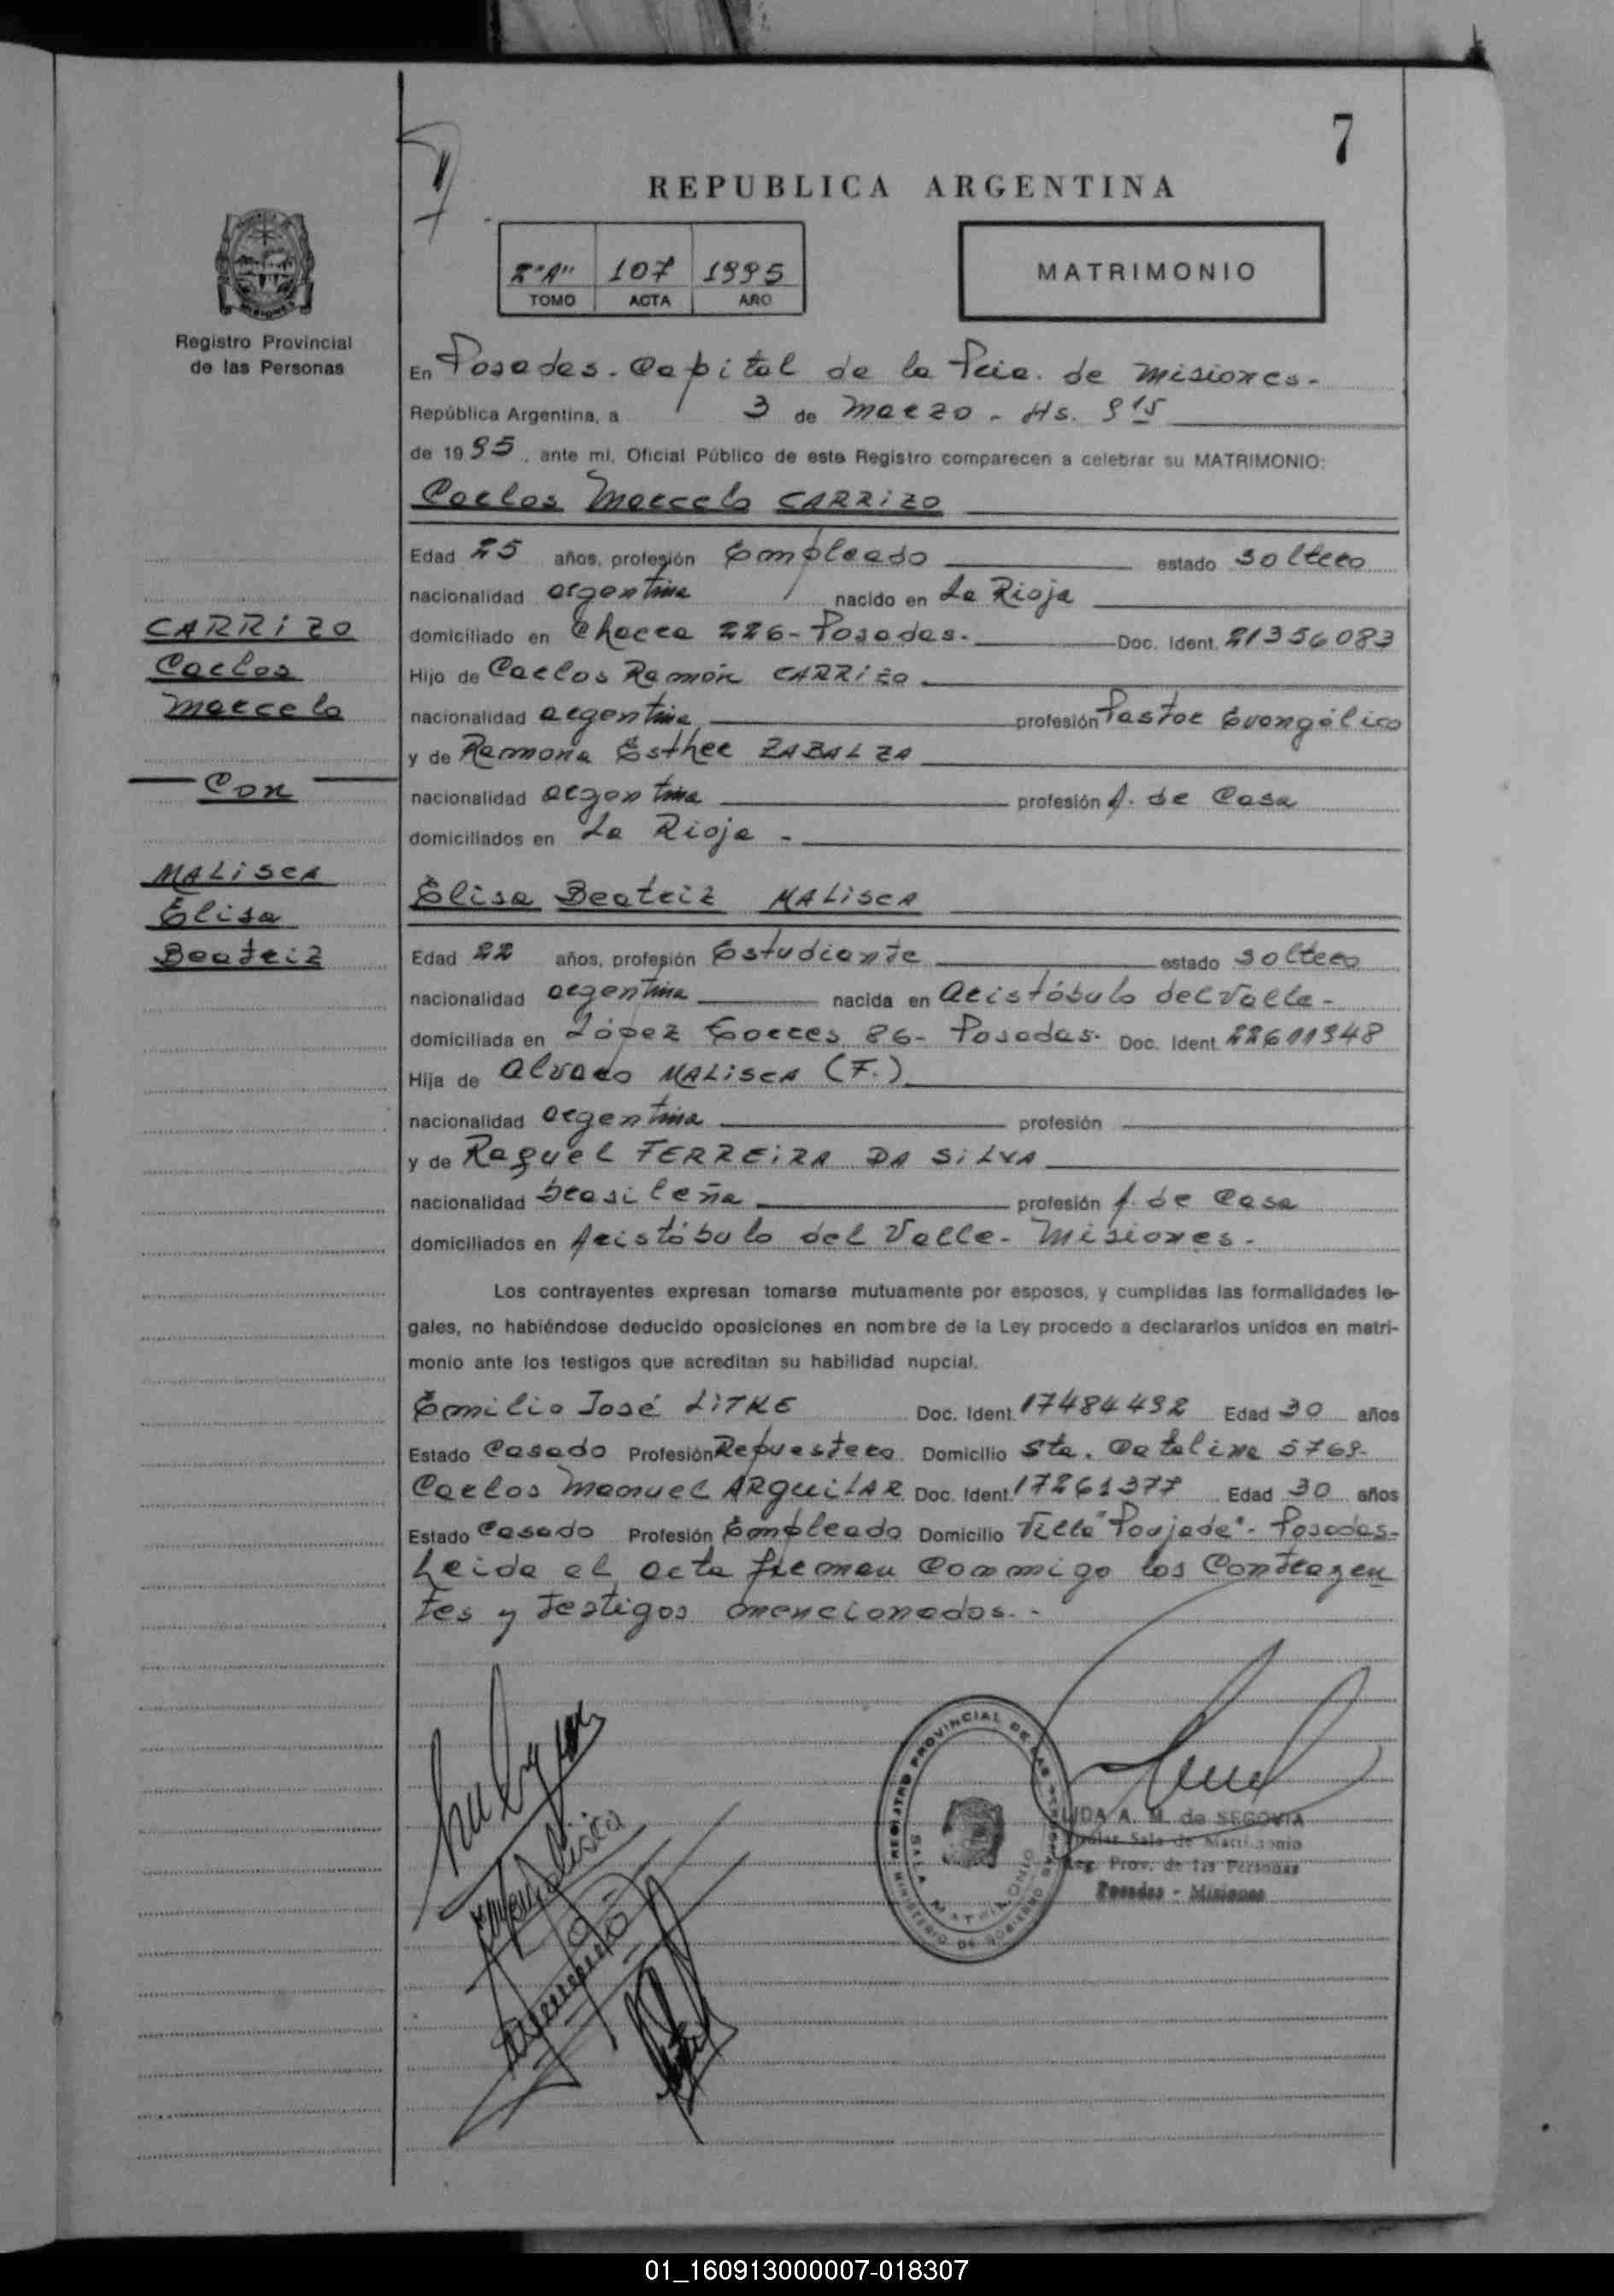 7
REPUBLICA ARGENTINA
2"A" 107 1995
TOMO ACTA AÑO
MATRIMONIO
Registro Provincial
de las Personas
En Posadas. Capital de la Pcia. de Misiones.
República Argentina, a 3 de Marzo - Hs. 9 15
de 1995, ante mí, Oficial Público de este Registro comparecen a celebrar su MATRIMONIO:
Carlos Marcelo CARRIZO
Edad 25 años, profesión Empleado estado soltero
nacionalidad argentina nacido en La Rioja
domiciliado en Chacra 226 - Posadas. Doc. Ident. 21356083
Hijo de Carlos Ramón CARRIZO
nacionalidad argentina profesión Pastor Evangélico
y de Ramona Esther ZABALZA
nacionalidad argentina profesión A. de Casa
domiciliados en La Rioja -
Elisa Beatriz MALISCA
Edad 22 años, profesión Estudiante estado soltero
nacionalidad argentina nacida en Aristóbulo del Valle -
domiciliada en López Torres 86 - Posadas. Doc. Ident. 22611948
Hija de Alvaro MALISCA (F.)
nacionalidad argentina profesión
y de Raquel FERREIRA DA SILVA
nacionalidad brasileña profesión A. de Casa
domiciliados en Aristóbulo del Valle - Misiones -
CARRIZO
Carlos
Marcelo
Con
MALISCA
Elisa
Beatriz
Los contrayentes expresan tomarse mutuamente por esposos, y cumplidas las formalidades le-
gales, no habiéndose deducido oposiciones en nombre de la Ley procedo a declararlos unidos en matri-
monio ante los testigos que acreditan su habilidad nupcial.
Emilio José LITKE Doc. Ident. 17484492 Edad 30 años
Estado Casado Profesión Repuestero Domicilio Sta. Catalina 5769-
Carlos Manuel ARguiLAR Doc. Ident. 17261377 Edad 30 años
Estado Casado Profesión Empleado Domicilio Villa "Poujade" - Posadas-
Leida el acta firman conmigo los Contrayen
tes y testigos mencionados. -
REGISTRO PROVINCIAL DE LAS PERSONAS
SALA MATRIMONIO
MINISTERIO DE GOBIERNO
LIDA A. M. de SEGOVIA
Titular Sala de Matrimonio
Reg. Prov. de las Personas
Posadas - Misiones
01_160913000007-018307